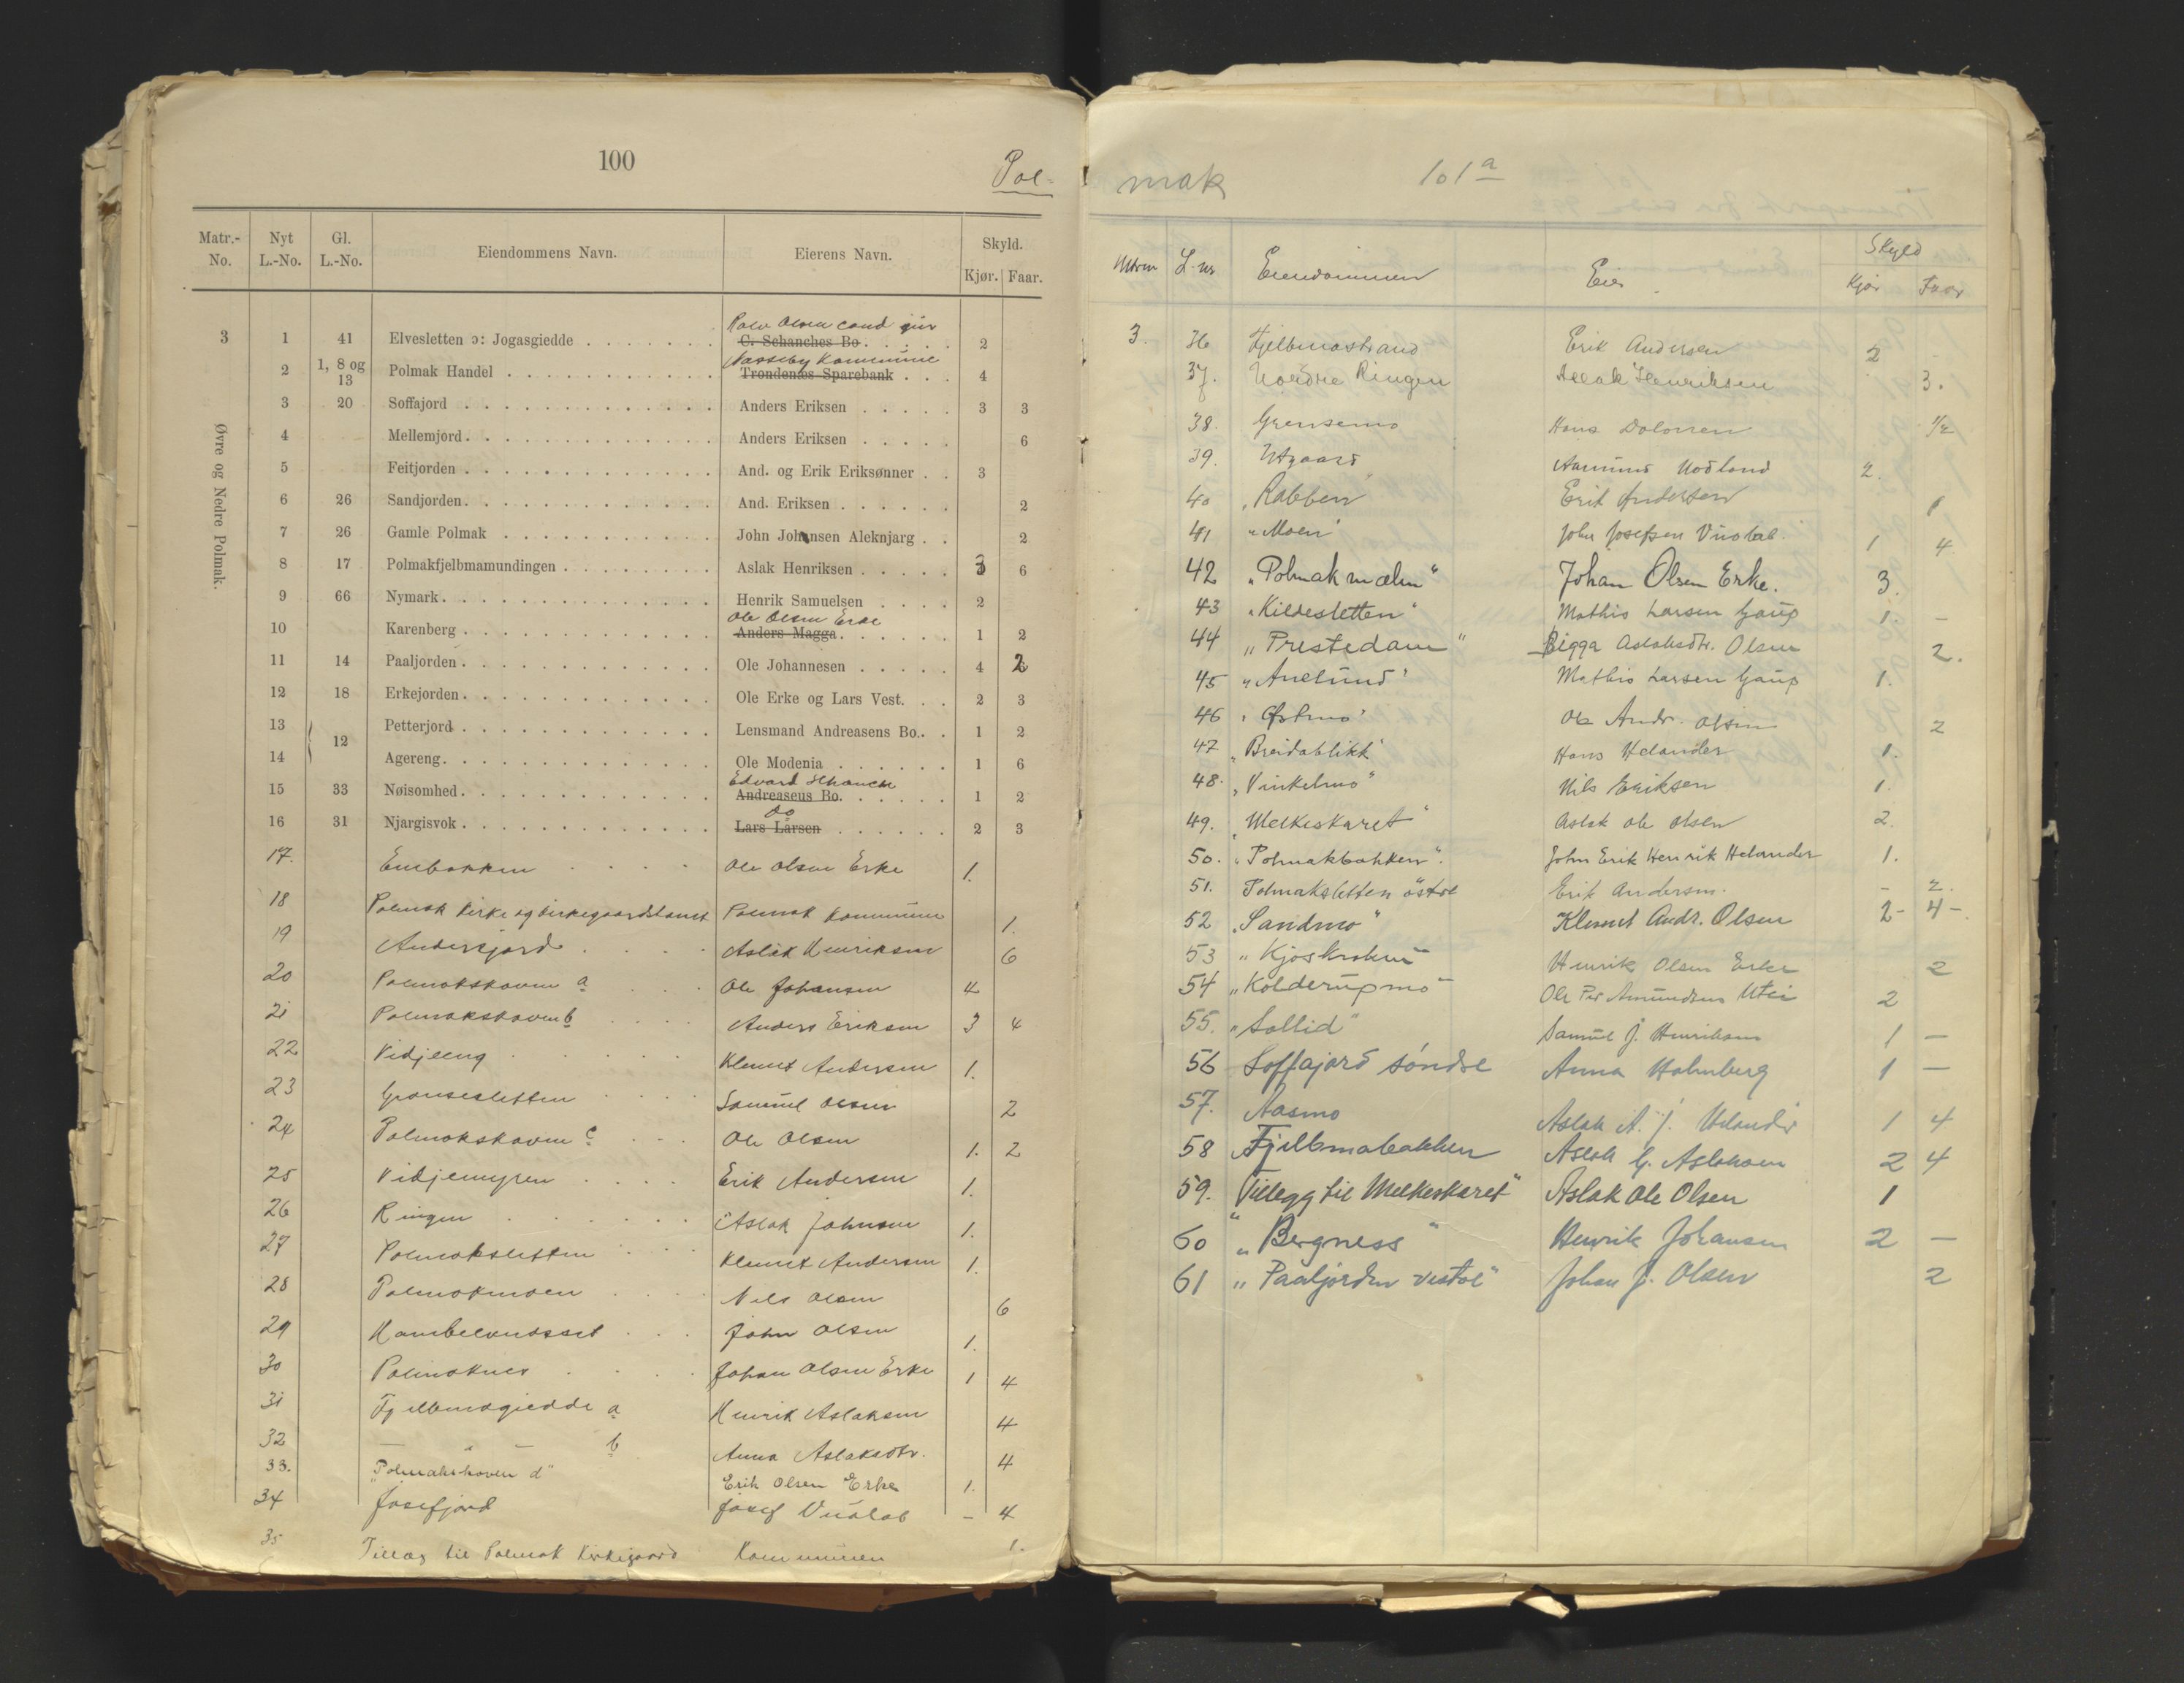 100
Pol-
Matr.-No. Nyt L.-No. Gl. L.-No. Eiendommens Navn. Eierens Navn. Skyld. Kjør. Faar.
Øvre og Nedre Polmak.
Rolv Olsen cand jur
3 1 41 Elvesletten ɔ: Jogasgiedde . . . . . . . C. Schanches Bo . . . . . 2
Næsseby Kommune
2 1, 8 og 13 Polmak Handel . . . . . . . . . . . Trondenæs Sparebank . . . 4
3 20 Soffajord . . . . . . . . . . . . . Anders Eriksen . . . . . 3 3
4 Mellemjord . . . . . . . . . . . . . Anders Eriksen . . . . . 6
5 Feitjorden . . . . . . . . . . . . . And. og Erik Eriksønner . . 3
6 26 Sandjorden . . . . . . . . . . . . . And. Eriksen . . . . . . 2
7 26 Gamle Polmak . . . . . . . . . . . John Johnsen Aleknjarg . . 2
8 17 Polmakfjelbmamundingen . . . . . . . . Aslak Henriksen . . . . . 3 6
9 66 Nymark . . . . . . . . . . . . . . Henrik Samuelsen . . . . 2
Ole Olsen Erke
10 Karenberg . . . . . . . . . . . . . Anders Magga . . . . . . 1 2
11 14 Paaljorden . . . . . . . . . . . . . Ole Johannesen . . . . . 4 2
12 18 Erkejorden . . . . . . . . . . . . . Ole Erke og Lars Vest. . . 2 3
13 12 Petterjord . . . . . . . . . . . . . Lensmand Andreasens Bo. . . 1 2
14 Agereng . . . . . . . . . . . . . . Ole Modenia . . . . . . 1 6
Edvard Schanche
15 33 Nøisomhed . . . . . . . . . . . . . Andreasens Bo. . . . . . 1 2
do
16 31 Njargisvok . . . . . . . . . . . . . Lars Larsen . . . . . . 2 3
17. Ole Olsen Erke 1.
18 Polmak Kirke og kirkegaardstomt Polmak Kommune 1.
19 Andersjord Aslak Henriksen 6
20 Polmakskoven a Ole Johansen 4
21 Polmakskoven b Anders Eriksen 3 4
22 Vidjeeng Klemet Andersen 1.
23 Grænsesletten Samuel Olsen 2
24 Polmakskoven c Ole Olsen 1. 2
25 Vidjemyren Erik Andersen 1.
26 Ringen Aslak Johnsen 1.
27 Polmaksletten Klemet Andersen 1.
28 Polmakmoen Nils Olsen 6
29 John Olsen 1.
30 Polmaknes Johan Olsen Erke 1 4
31 Fjelbmagiedde a Henrik Aslaksen 4
32 — " — b Anna Aslaksdtr. 4
33. "Polmakskoven d" Erik Olsen Erke 1.
34 Josefjord Josef Vuolab - 4
35 Tillæg til Polmak Kirkegaard Kommunen 1.
mak
101 a
Mtrn L. nr Eiendommen Eier Skyld Kjør Faar
3. 36 Fjelbmastrand Erik Andersen 2 -
37. Nordre Ringen Aslak Henriksen 3.
38. Grensemo Hans 1/2
39. Utgaard Aamund Nodland 2.
40 "Rabben" Erik Andersen 1
41 "Moen" John Josefsen Vuolab. 1 4
42 "Polmakmælen" Johan Olsen Erke. 3.
43 "Kildesletten" Mathis Larsen Gaup 1. -
44 "Prestedam" Bigga Aslaksdtr. Olsen 2.
45 "Anelund" Mathis Larsen Gaup 1.
46 "Østmo" Ole Andr. Olsen 2
47 "Breidablikk" Hans Helander 1.
48. "Vinkelmo" Nils Eriksen 1.
49. "Melkeskaret" Aslak Ole Olsen 2.
50. "Polmakbakken". John Erik Henrik Helander 1.
51. Polmaksletten östre Erik Andersen. - 2.
52 "Sandmo" Klemet Andr. Olsen 2- 4-
53 Henrik Olsen Erke 2
54 "Kolderupmo" Ole Per Amundsen Utsi 2
55. "Sollid" Samuel J. Henriksen 1 —
56 Soffajord söndre Anna Holmberg 1 —
57. Aasmo Aslak A. J. Helander 1 4
58 Fjelbmabakken Aslak G. Aslaksen 2 4
59. "Tillegg til Melkeskaret" Aslak Ole Olsen 1
60 "Bergness" Henrik Johansen 2 —
61 "Paaljorden vestre" Johan J. Olsen 2